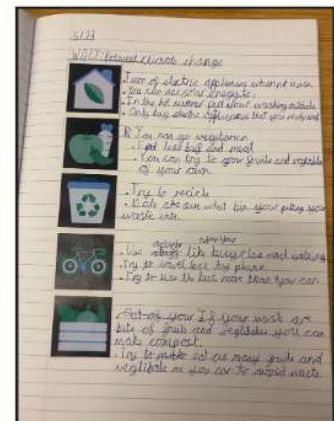 5/23
WALT: Prevent climate change
. Turn of electric appliences when not in use.
. You can use solar energy
. In the hot summer peg your washing outside
. Only buy electric appliences that you really need
. You can go vegetarian
. Eat less beef and meat
. You can try to grow fruits and vegetables
of your own.
. Try to recicle
. out what bin your puting your
waste into.
. Use like bicycles and walking
. Try to travel less by plane.
. Try to use the bus more than your car.
If your waste are
bits of fruits and vegtables you can
make compost.
. Try to eat as many fruits and
vegtibale as you can to avoid waste.